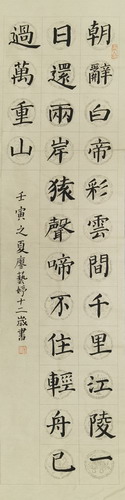 朝辭白帝彩雲間千里江陵一
日還兩岸猿聲啼不住輕舟已
過萬重山
壬寅之夏廖藝婷十二歲書